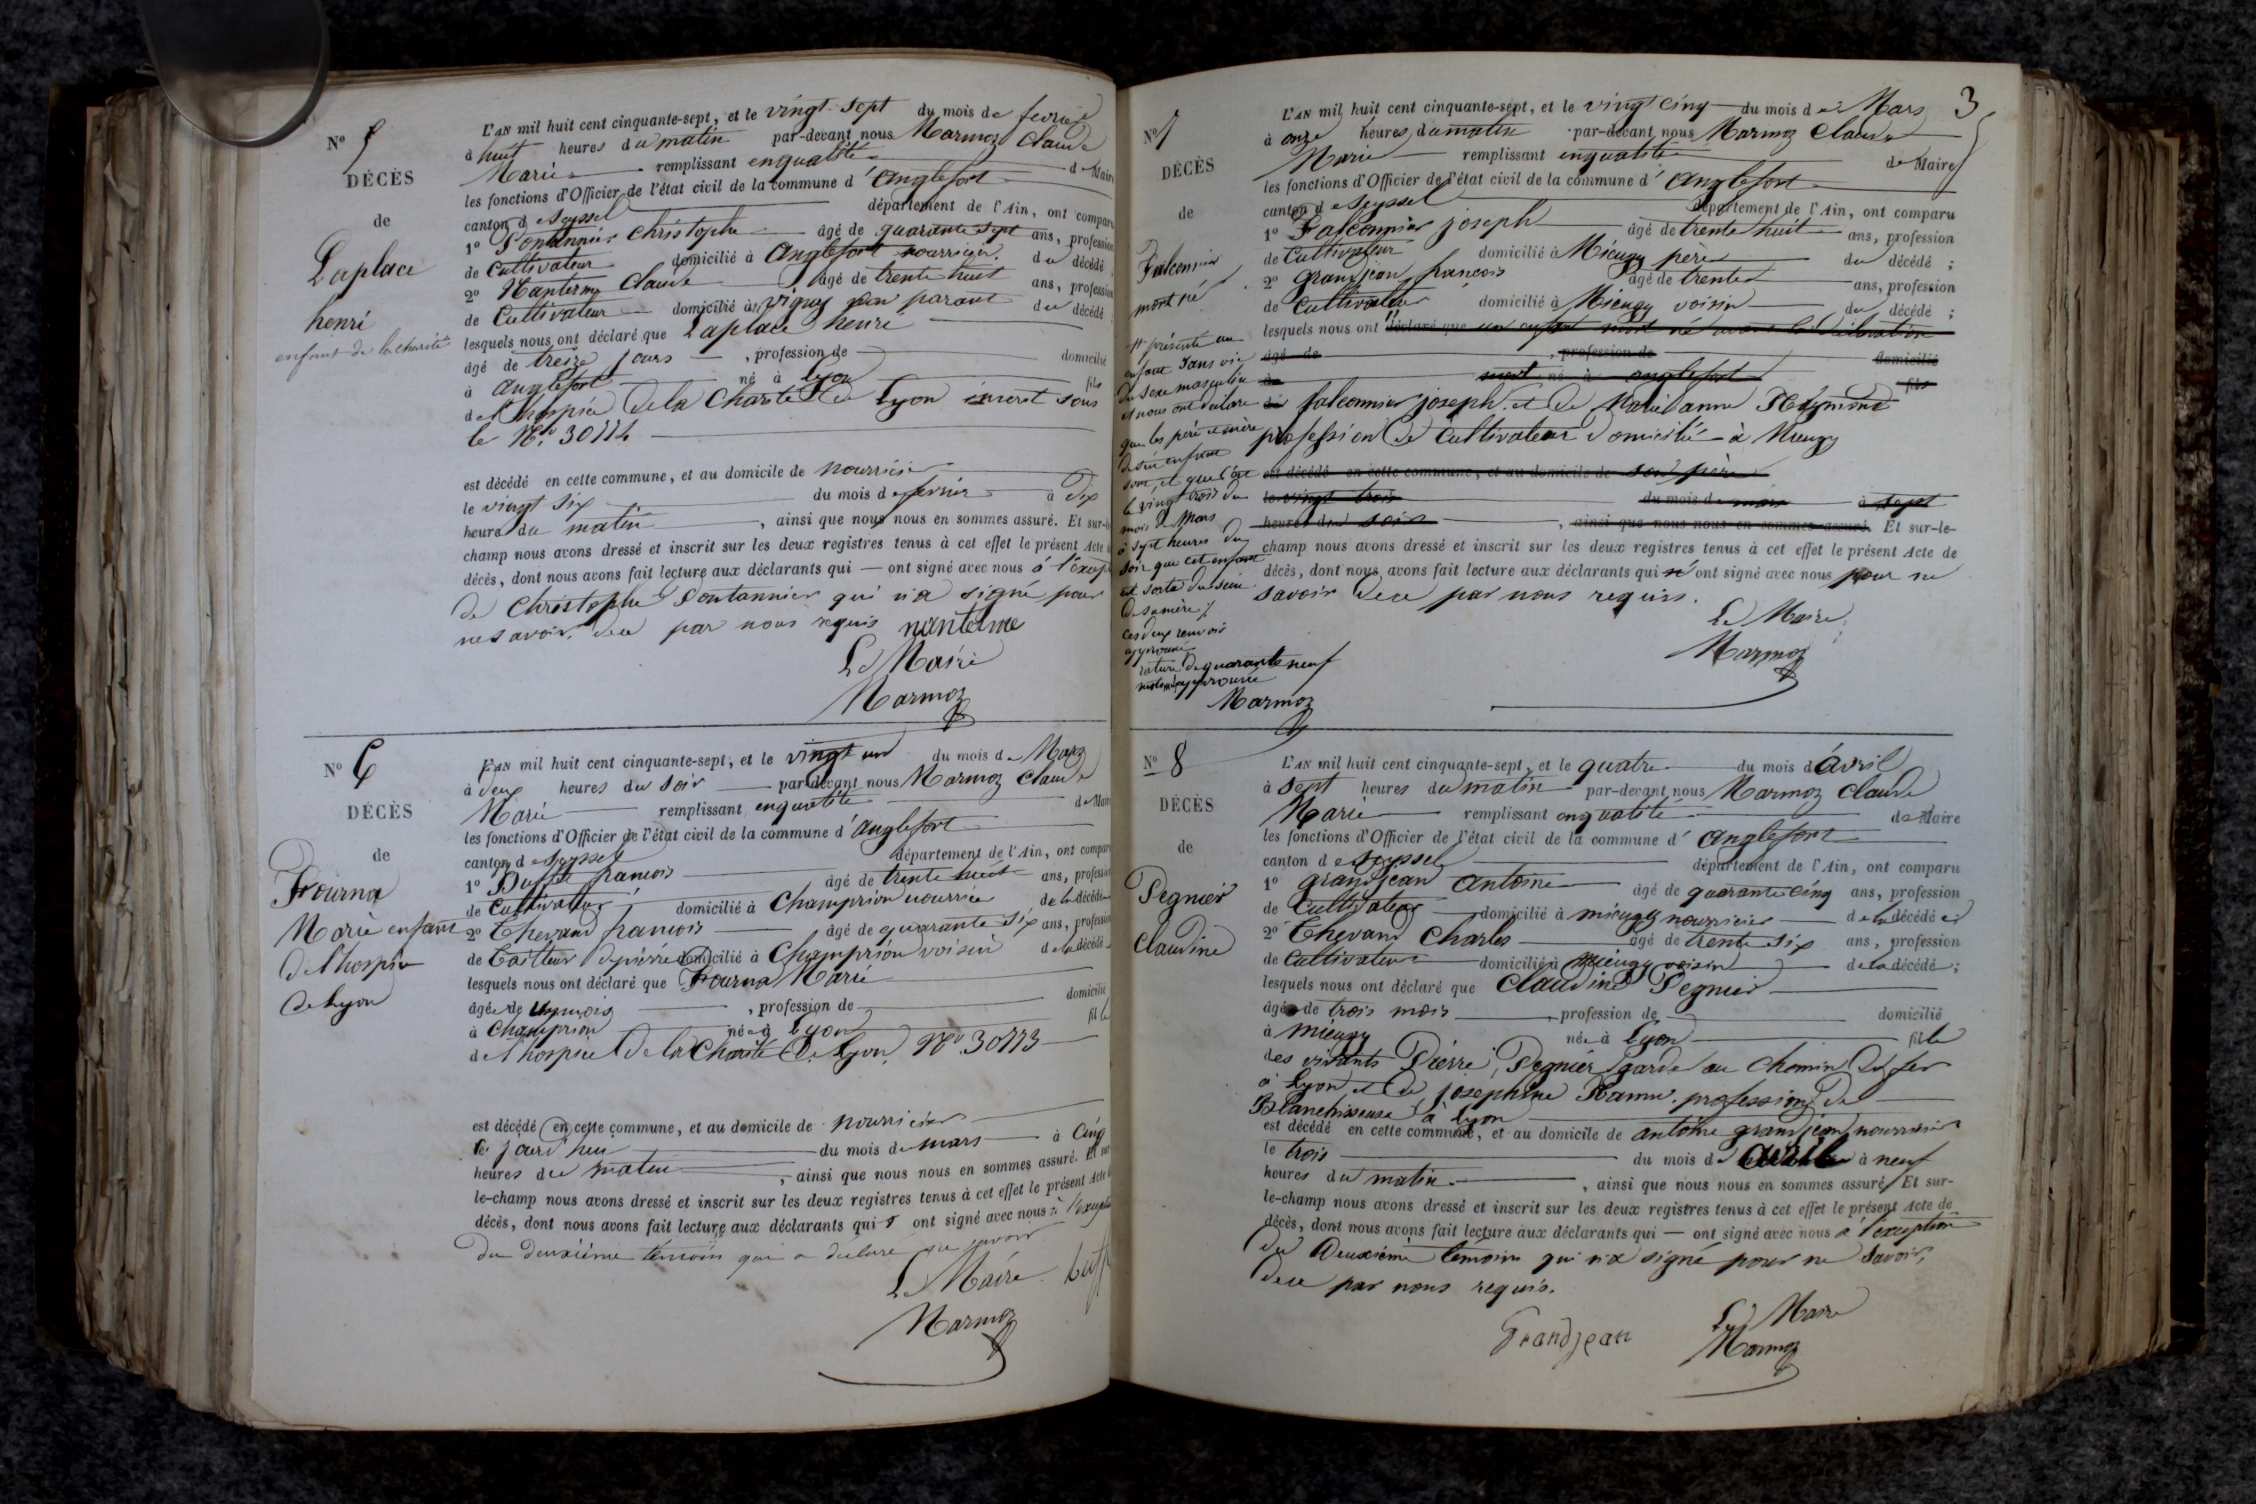 Nº 5
DÉCÈS
de
Laplace
henri
enfant de la charité
L'AN mil huit cent cinquante-sept, et le vingt-sept du mois de fevrier
à huit heures du matin par-devant nous Marmoz Claude
Marie remplissant en qualité de Maire
les fonctions d'Officier de l'état civil de la commune d'Anglefort
canton de Seyssel département de l'Ain, ont comparu
1º Christophe âgé de quarante sept ans, profession
de Cultivateur domicilié à Anglefort nourricier du décédé
2º Claude âgé de trente huit ans, profession
de Cultivateur domicilié à non parant du décédé
lesquels nous ont déclaré que Laplace henri
âgé de treize jours, profession de domicilié
à Anglefort né à Lyon fils
de l'hospice de la Charité de Lyon inscrit sous
le Nº 30114
est décédé en cette commune, et au domicile de nourricier
le vingt six du mois de fevrier à dix
heure du matin, ainsi que nous nous en sommes assuré. Et sur-le-
champ nous avons dressé et inscrit sur les deux registres tenus à cet effet le présent Acte
décès, dont nous avons fait lecture aux déclarants qui — ont signé avec nous à l'excep
de Christophe qui n'a signé pour
ne savoir, de ce par nous requis nanterme
Le Maire
Marmoz
Nº 6
DÉCÈS
de
Fourna
Marie enfant
de l'hospice
de Lyon
L'AN mil huit cent cinquante-sept, et le vingt un du mois de Mars
à deux heures du soir par-devant nous Marmoz Claude
Marie remplissant en qualité de Maire
les fonctions d'Officier de l'état civil de la commune d'Anglefort
canton de Seyssel département de l'Ain, ont compar
1º francois âgé de trente huit ans, profession
de Cultivateur domicilié à Champrion nourricier de la décédée
2º Thevand francois âgé de quarante six ans, profession
de Tailleur de pierre domicilié à Champrion voisin de la décédée
lesquels nous ont déclaré que Fourna Marie
âgée de un mois, profession de domicilié
à Champrion née à Lyon fille
de l'hospice de la Charité de Lyon, Nº 30113
est décédé en cette commune, et au domicile de nourricier
le jourd'hui du mois de mars à cinq
heures du matin, ainsi que nous nous en sommes assuré. Et sur
le-champ nous avons dressé et inscrit sur les deux registres tenus à cet effet le présent Acte
décès, dont nous avons fait lecture aux déclarants qui ont signé avec nous à l'excep
du deuxième temoin qui a declaré ne savoir
Le Maire
Marmoz
3
Nº 7
DÉCÈS
de
Falconnier
mort né
L'AN mil huit cent cinquante-sept, et le vingt cinq du mois de Mars
à onze heures du matin par-devant nous Marmoz Claude
Marie remplissant en qualité de Maire
les fonctions d'Officier de l'état civil de la commune d'Anglefort
canton de Seyssel département de l'Ain, ont comparu
1º Falconnier joseph âgé de trente huit ans, profession
de Cultivateur domicilié à Mieugy père du décédé;
2º grandjean francois âgé de trente ans, profession
de Cultivateur domicilié à Mieugy voisin du décédé;
lesquels nous ont déclaré que un enfant mort né
âgé de, profession de domicilié
à mort né à anglefort fils
de falconnier joseph et de Marie anne
profession de Cultivateur domicilié à Mieugy
est décédé en cette commune, et au domicile de son père
le vingt trois du mois de mars à sept
heures du soir, ainsi que nous nous en sommes assuré. Et sur-le-
champ nous avons dressé et inscrit sur les deux registres tenus à cet effet le présent Acte de
décès, dont nous avons fait lecture aux déclarants qui n' ont signé avec nous pour ne
savoir de ce par nous requis.
Le Maire
Marmoz
présenté un
enfant sans vie
du sexe masculin
et nous ont déclaré
que les père et mère
de cet enfant
sont, et que c'est
le vingt trois du
mois de Mars
à sept heures du
soir que cet enfant
est sorti du sein
de sa mère
ces deux renvois
approuvé
rature de quarante neuf
mots approuvé
Marmoz
Nº 8
DÉCÈS
de
Pegnier
Claudine
L'AN mil huit cent cinquante-sept, et le quatre du mois d'avril
à sept heures du matin par-devant nous Marmoz Claude
Marie remplissant en qualité de Maire
les fonctions d'Officier de l'état civil de la commune d'Anglefort
canton de Seyssel département de l'Ain, ont comparu
1º grandjean Antoine âgé de quarante cinq ans, profession
de Cultivateur domicilié à mieugy nourricier de la décédé
2º Thevand Charles âgé de trente six ans, profession
de Cultivateur domicilié à Mieugy voisin de la décédé;
lesquels nous ont déclaré que Claudine Pegnier
âgé de trois mois, profession de domicilié
à mieugy née à Lyon fille
des vivants Pierre Pegnier garde au chemin de fer
à Lyon et de josephine profession de
Blanchisseuse à Lyon
est décédé en cette commune, et au domicile de antoine grandjean nourricier
le trois du mois de avril à neuf
heures du matin, ainsi que nous nous en sommes assuré. Et sur-
le-champ nous avons dressé et inscrit sur les deux registres tenus à cet effet le présent Acte de
décès, dont nous avons fait lecture aux déclarants qui — ont signé avec nous à l'exception
du Deuxième témoin qui n'a signé pour ne savoir,
de ce par nous requis.
Grandjean
Le Maire
Marmoz